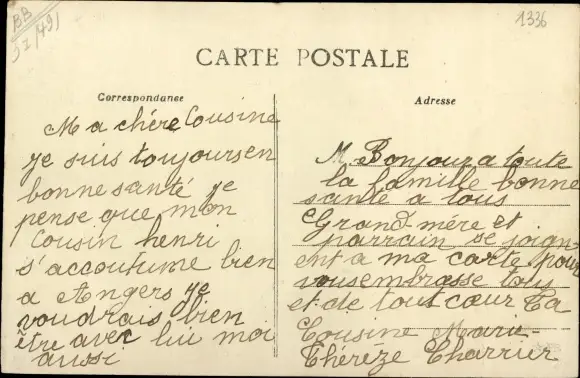 BB
1336
CARTE POSTALE
Correspondance
Ma chére Cousine
je suis toujoursen
bonne santé je
pense que mon
Cousin henri
s'accoutume bien
a Angers je
voudrais bien
être avec lui moi
aussi
Adresse
M. Bonjour a toute
la famille bonne
santé a tous
Grand-mére et
parrain se joign-
ent a ma carte pour
vousembrasse tous
et de tout cœur Ta
Cousine Marie-
Thérèze Charrier